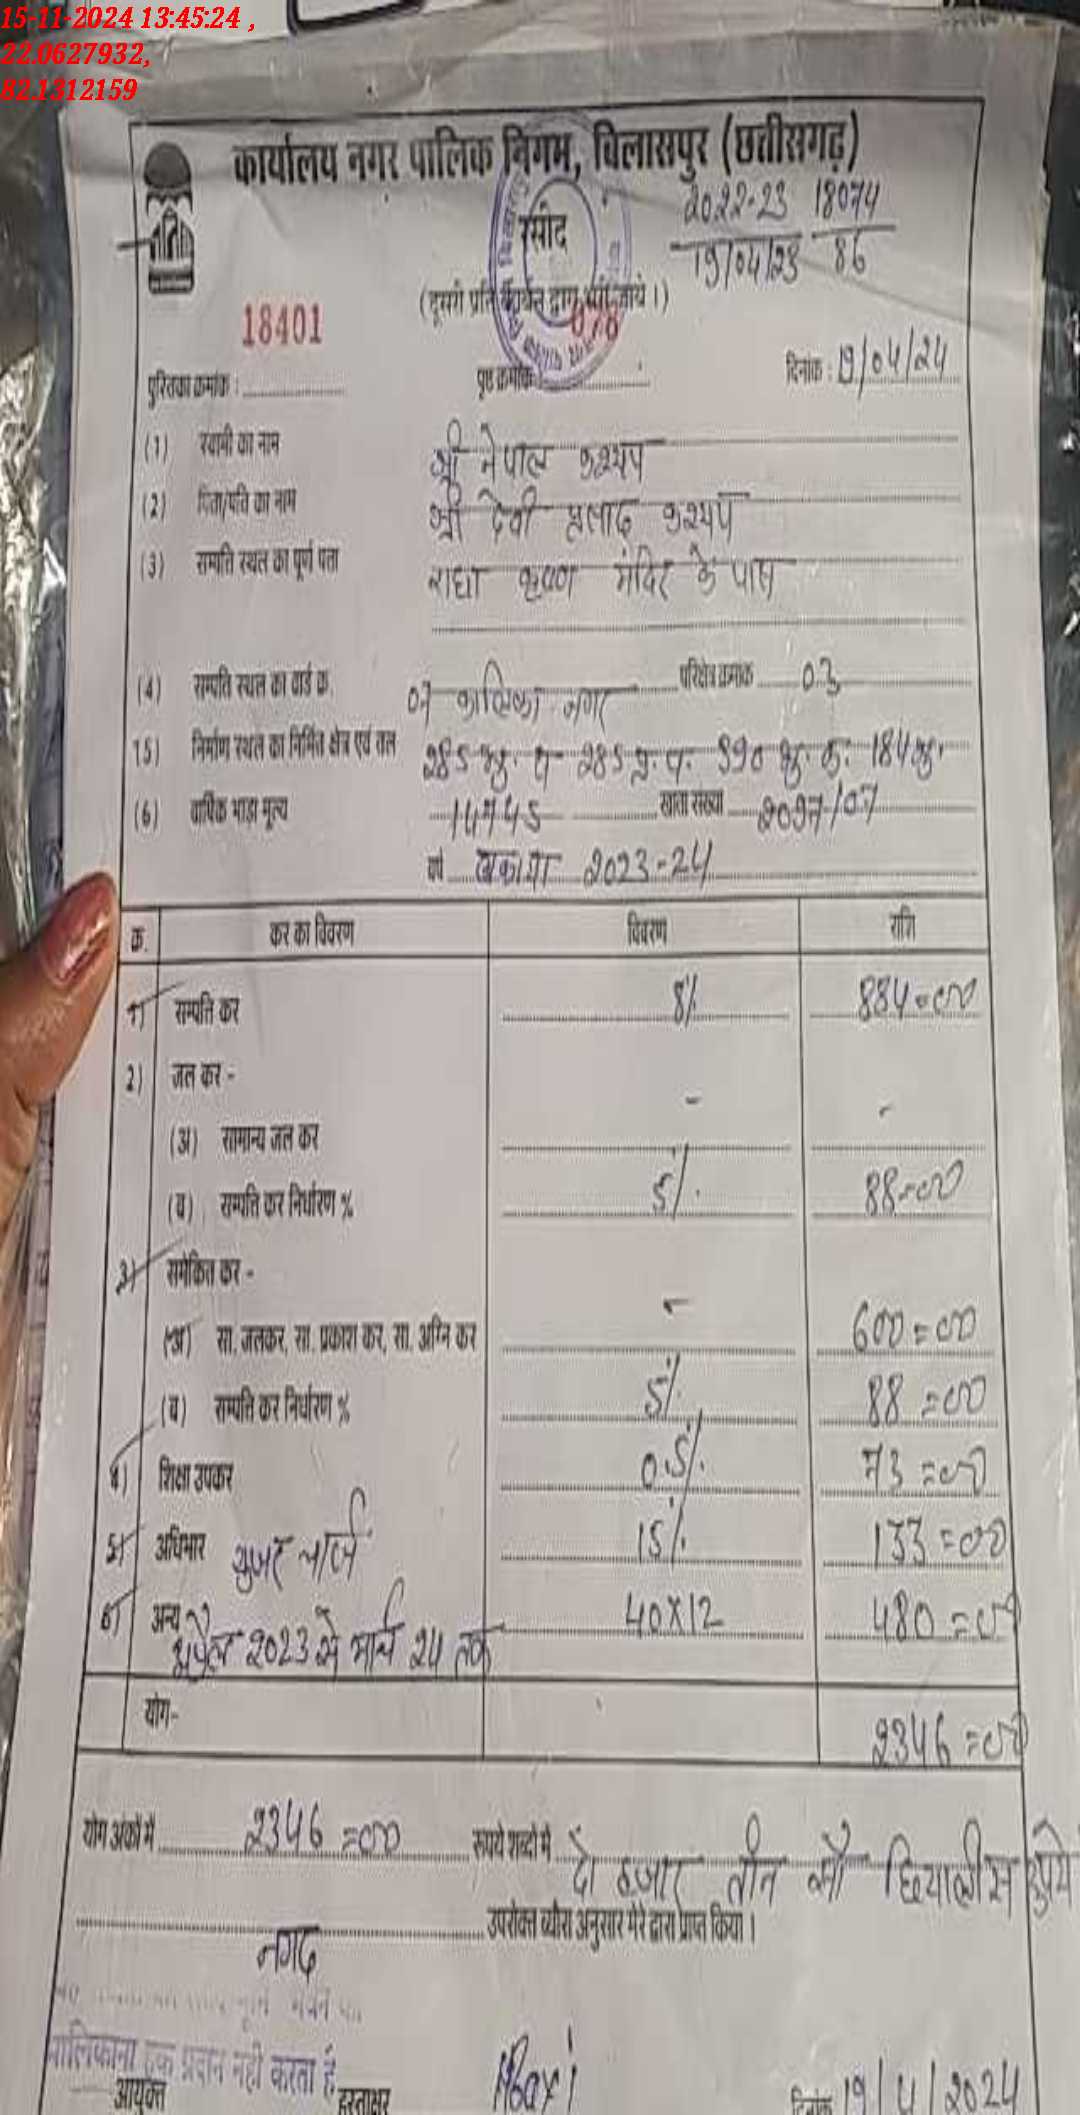 15-11-2024 13:45:24 ,
22.0627932,
82.1312159
कार्यालय नगर पालिक निगम, बिलासपुर (छत्तीसगढ़)
रसीद
2022-23 18074
19/04/23 86
(दूसरी प्रति कार्बन द्वारा भरी जाये।)
18401 078
पुस्तिका क्रमांक : पृष्ठ क्रमांक दिनांक : 19/04/24
(1) स्वामी का नाम श्री नेपाल कश्यप
(2) पिता/पति का नाम श्री देवी प्रसाद कश्यप
(3) सम्पत्ति स्थल का पूर्ण पता राधा कृष्ण मंदिर के पास
(4) सम्पत्ति स्थल का वार्ड क्र. 07 कालिका नगर परिक्षेत्र क्रमांक 03
(5) निर्माण स्थल का निर्मित क्षेत्र एवं तल 285 285 590 184
(6) वार्षिक भाड़ा मूल्य 14745 खाता संख्या 2097/07
वर्ष बकाया 2023-24
क्र. कर का विवरण विवरण राशि
1) सम्पत्ति कर 8% 884=00
2) जल कर -
(अ) सामान्य जल कर - -
(ब) सम्पत्ति कर निर्धारण % 5% 88=00
3) समेकित कर -
(अ) सा. जलकर, सा. प्रकाश कर, सा. अग्नि कर - 600=00
(ब) सम्पत्ति कर निर्धारण % 5% 88=00
4) शिक्षा उपकर 0.5% 73=00
5) अधिभार 15% 133=00
यूजर चार्ज
6) अन्य 40X12 480=00
अप्रैल 2023 से मार्च 24 तक
योग- 2346=00
योग अंकों में 2346=00 रूपये शब्दों में दो हजार तीन सौ छियालीस रुपये
नगद उपरोक्त ब्यौरा अनुसार मेरे द्वारा प्राप्त किया।
मालिकाना हक प्रदान नहीं करता है
आयुक्त हस्ताक्षर दिनांक 19/4/2024